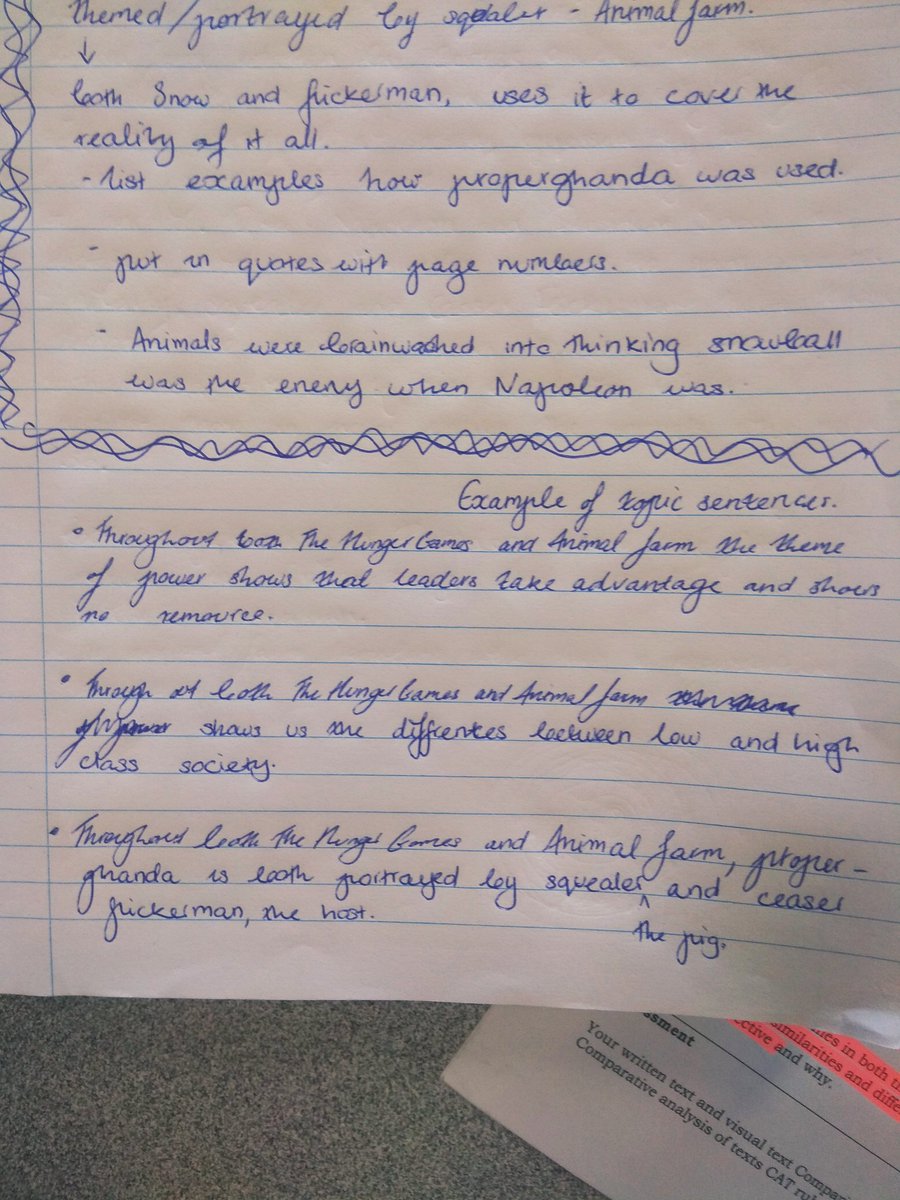 themed/portrayed by squealer - Animal farm.
↓
both Snow and flickerman, uses it to cover the
reality of it all.
- list examples how properghanda was used.
- put in quotes with page numbers.
- Animals were brainwashed into thinking snowball
was the enemy when Napoleon was.
Example of topic sentences.
• Throughout both The Hunger Games and Animal farm the theme
of power shows that leaders take advantage and shows
no remource.
• Through out both The Hunger Games and Animal farm
shows us the diffrentes between low and high
class society.
• Throughout both The Hunger Games and Animal farm, proper-
ghanda is both portrayed by squealer ^ and ceaser
flickerman, the host.
the pig.
ssment
Your written text and visual text Compa
Comparative analysis of texts CAT ru
in both th
similarities and diffe
ective and why.